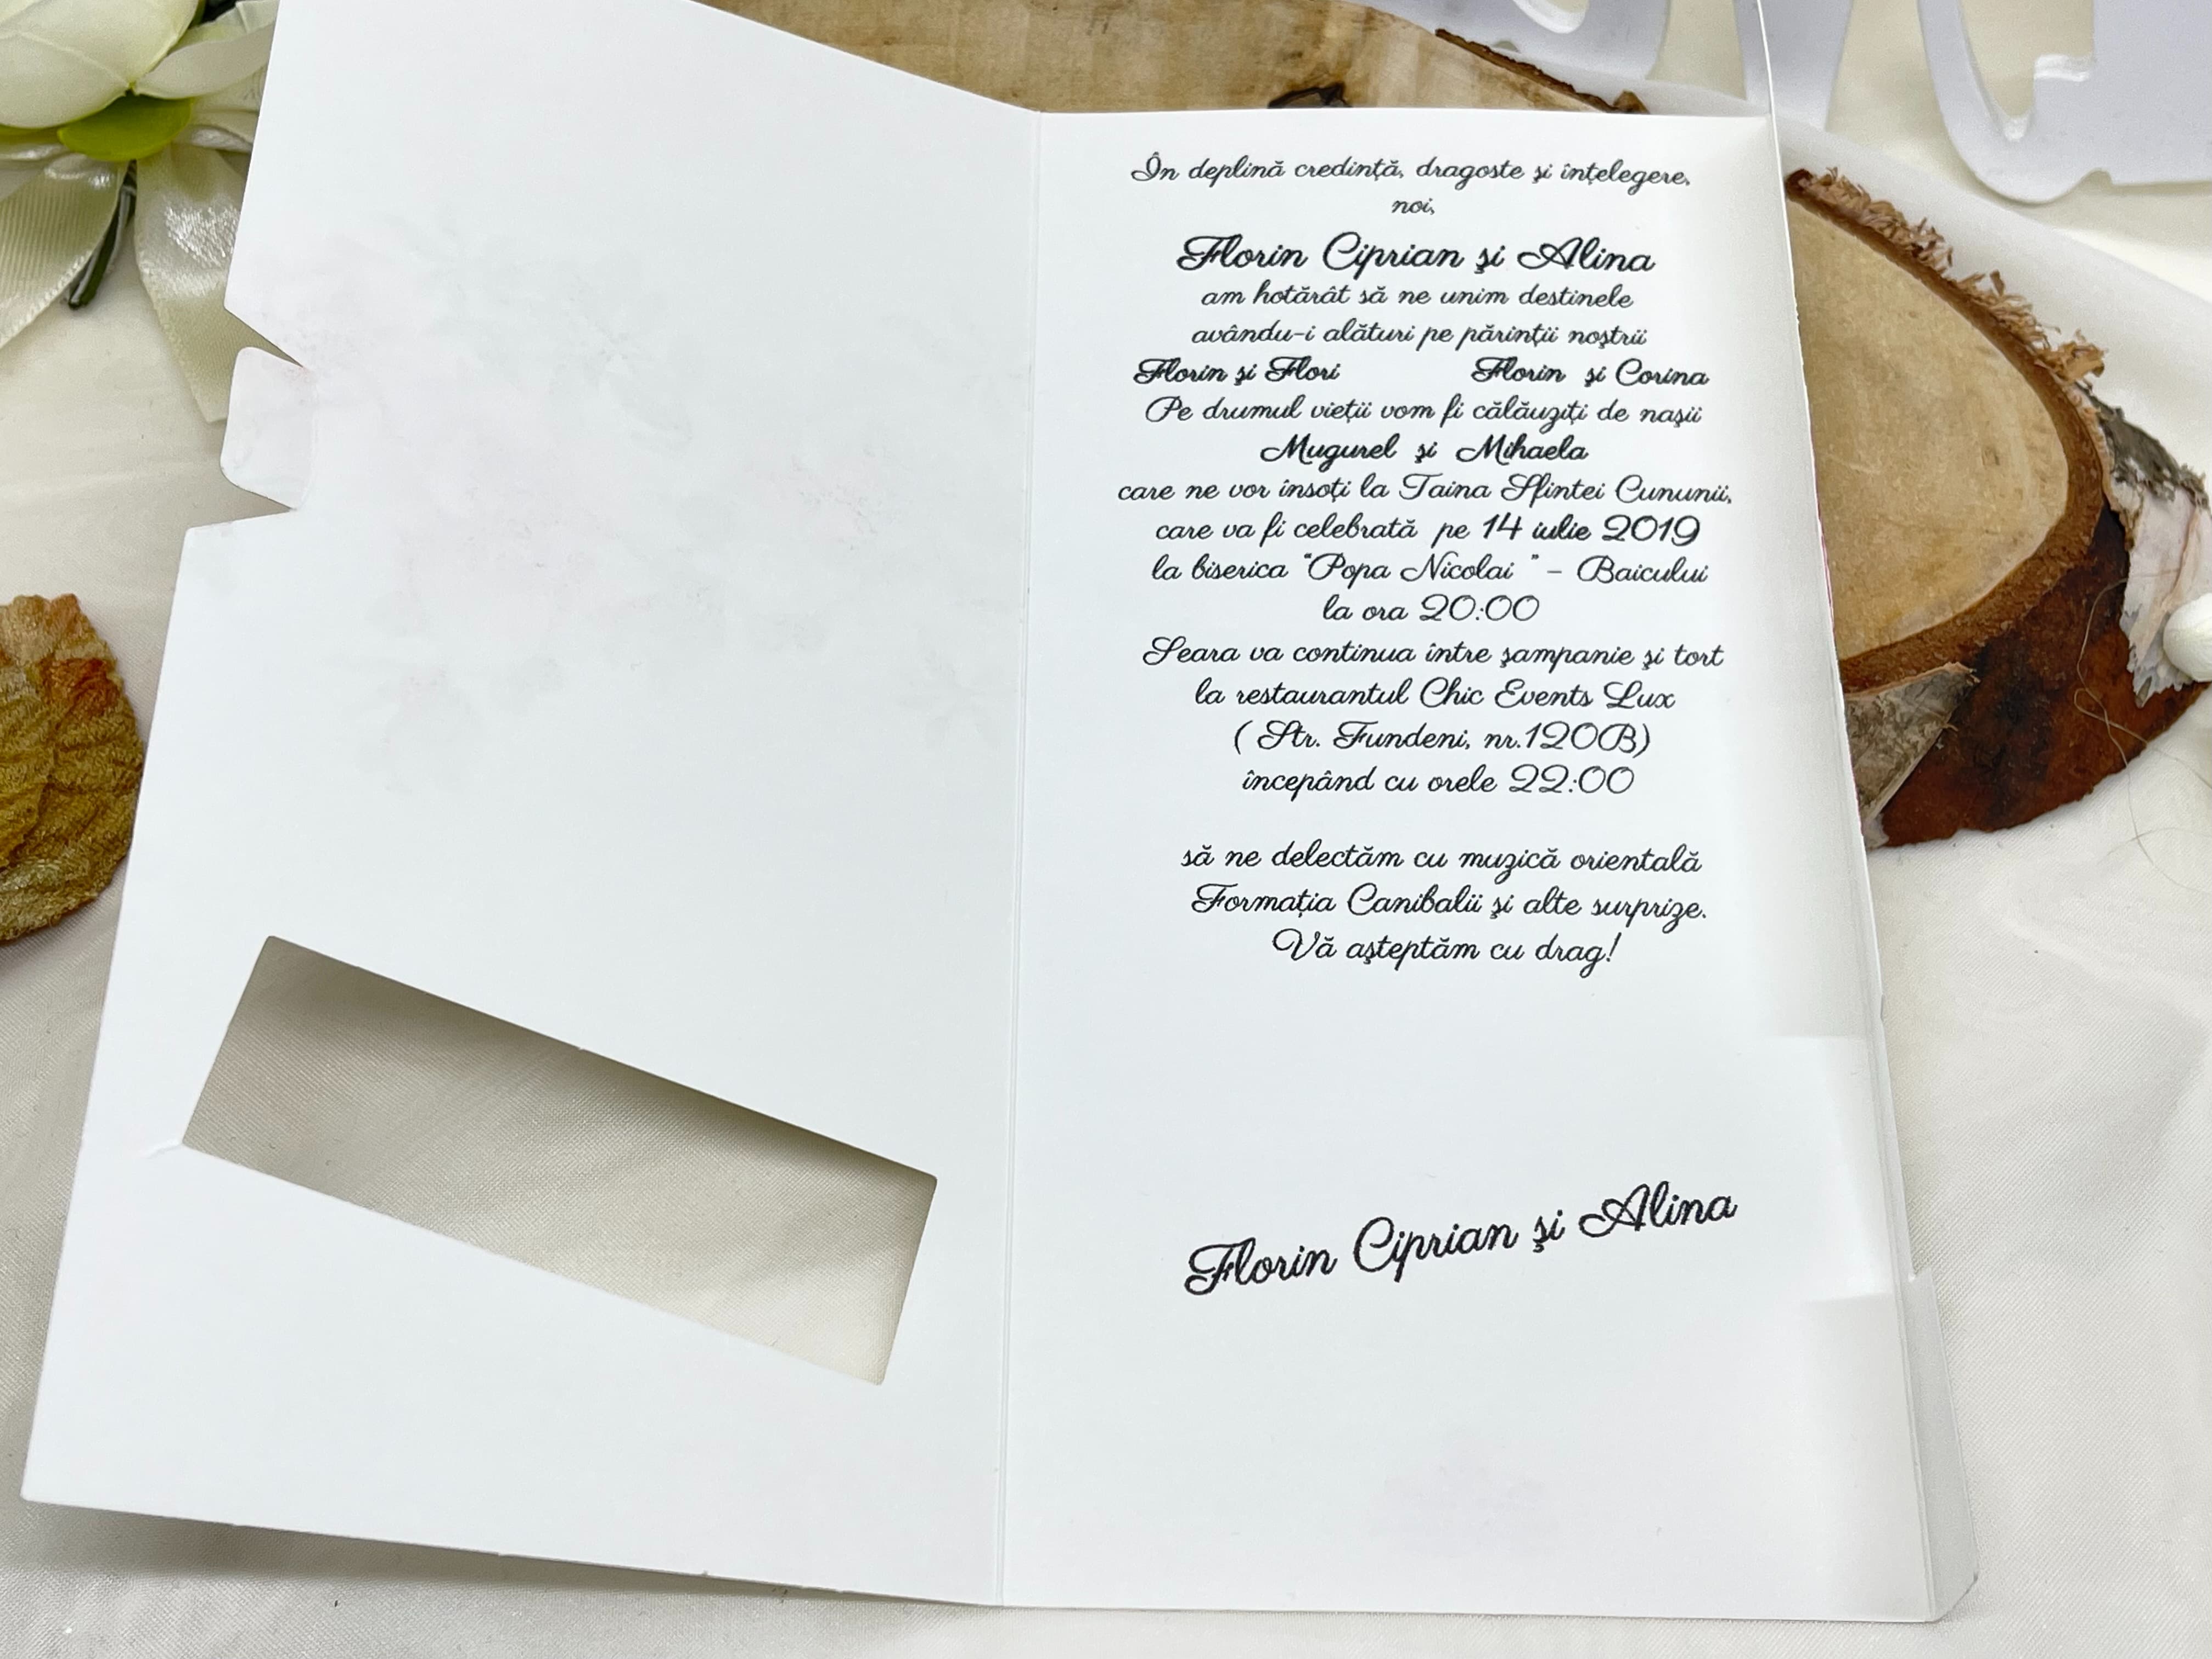 În deplină credință, dragoste și înțelegere,
noi,
Florin Ciprian și Alina
am hotărât să ne unim destinele
avându-i alături pe părinții noștrii
Florin și Flori Florin și Corina
Pe drumul vieții vom fi călăuziți de nașii
Mugurel și Mihaela
care ne vor însoți la Taina Sfintei Cununii,
care va fi celebrată pe 14 iulie 2019
la biserica "Popa Nicolai " - Baicului
la ora 20:00
Seara va continua între șampanie și tort
la restaurantul Chic Events Lux
( Str. Fundeni, nr.120B)
începând cu orele 22:00
să ne delectăm cu muzică orientală
Formația Canibalii și alte surprize.
Vă așteptăm cu drag!
Florin Ciprian și Alina